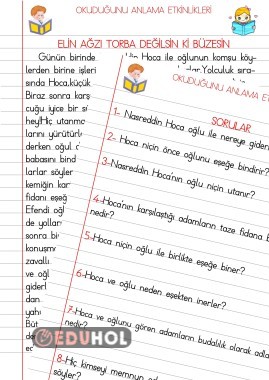 OKUDUĞUNU ANLAMA ETKİNLİKLERİ
ELİN AĞZI TORBA DEĞİLSİN Kİ BÜZESİN
Günün birinde
Hoca ile oğlunun komşu köy-
lerden birine işleri
Yolculuk sıra-
sında Hoca, küçük
Biraz sonra karş
cuğu iyice bir s
hey! Hiç utanma
larını yürütürl
derken oğul c
babasını bind
larlar söyler
kemiğin kar
fidanı eşeğ
Efendi oğl
de yollar
sonra bi
konuşmı
zavallı
ve oğl
giderl
dan
yahı
Büt
de
OKUDUĞUNU ANLAMA ET
SORULAR
1- Nasreddin Hoca oğlu ile nereye gider
2- Hoca niçin önce oğlunu eşeğe bindirir?
3-Nasreddin Hoca'nın oğlu niçin utanır?
4-Hoca'nın karşılaştığı adamların taze fidana b
nedir?
5-Hoca niçin oğlu ile birlikte eşeğe biner?
6-Hoca ve oğlu neden eşekten inerler?
7-Hoca ve oğlunu gören adamların budalalık olarak adla
nedir?
8-Hiç kimseyi memnun
söyler?
EDUHOL